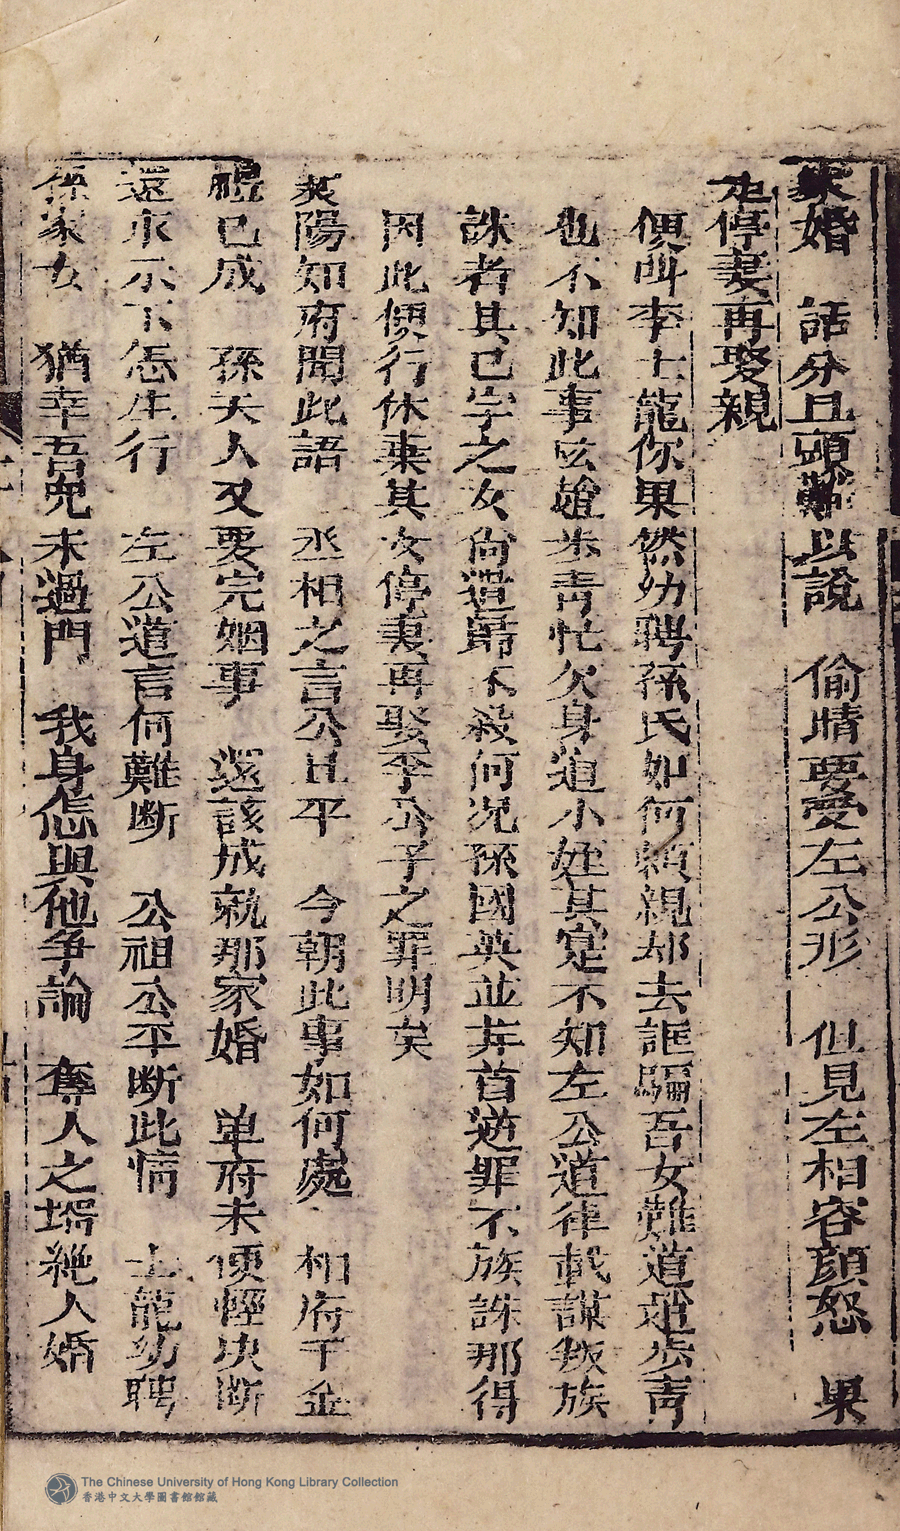 家婚　話分且頭難以說　偷睛要愛左公形　但見左相容顔怒　果
是停妻再娶親
便叫李士龍你果然幼聘孫氏如何賴親却去誆騙吾女難道趙步青
也不知此事広趙步青忙欠身道小姪其寔不知左公道律載謀叛族
誅者其已字之女尙遣歸不殺何况孫國英並非首逆罪不族誅那得
因此便行休棄其女停妻再娶李公子之罪明矣
㐮陽知府聞此語　丞相之言公且平　今朝此事如何處　相府千金
禮已成　孫夫人又要完姻事　還該成就那家婚　卑府未便輕决斷
還求示下憑生行　左公道言何難断　公祖公平断此情　士龍幼聘
係家女　猶幸吾兒未過門　我身怎與他爭論　奪人之壻絶人婚
The Chinese University of Hong Kong Library Collection
香港中文大學圖書館館藏